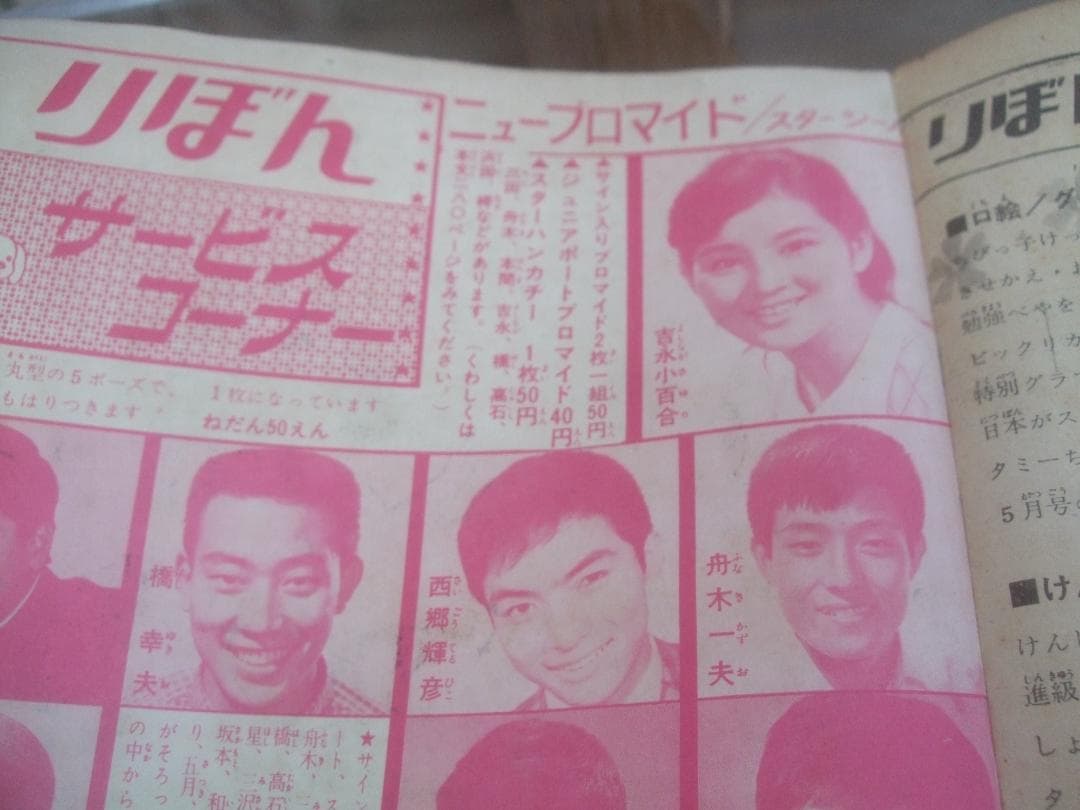 りぼん
サービス
コーナー
丸型の5ポーズで、 1枚になっています
もはりつきます。 ねだん50えん
ニューブロマイド/スターシール
▲サイン入りブロマイド2枚一組50円
▲ジュニアポートブロマイド40円
▲スターハンカチー 1枚50円
三田、舟木、本間、吉永、橋、高石、
浜田、梓などがあります。(くわしくは
本文一八〇ページをみてください。)
吉永小百合
橋幸夫
西郷輝彦
舟木一夫
★サイン
ート、ス
舟木、三
橋、高石
星、三沢
坂本、和
り、五月
がそろっ
の中から
りぼ
■口絵/グ
ちびっ子けっ
きせかえ・お
勉強べやを
ビックリカ
特別グラ
日本がス
タミーち
5月号の
■け
けん
進級
しょ
タ